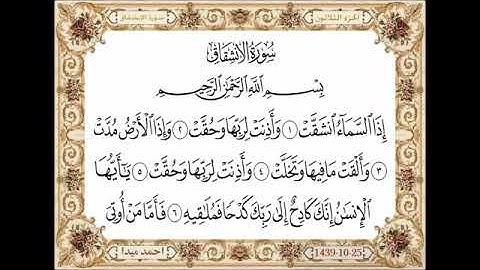 الجزء الثلاثون
سورة الانشقاق
سُورَةُ الانشِقَاقِ
بِسْمِ اللَّهِ الرَّحْمَٰنِ الرَّحِيمِ
إِذَا السَّمَاءُ انشَقَّتْ ١ وَأَذِنَتْ لِرَبِّهَا وَحُقَّتْ ٢ وَإِذَا الْأَرْضُ مُدَّتْ
٣ وَأَلْقَتْ مَا فِيهَا وَتَخَلَّتْ ٤ وَأَذِنَتْ لِرَبِّهَا وَحُقَّتْ ٥ يَٰأَيُّهَا
الْإِنسَٰنُ إِنَّكَ كَادِحٌ إِلَىٰ رَبِّكَ كَدْحًا فَمُلَٰقِيهِ ٦ فَأَمَّا مَنْ أُوتِىَ
1439-10-25
احمد ميدا